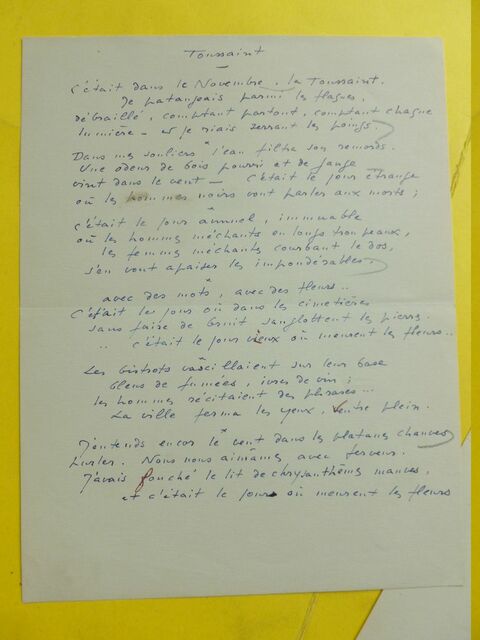 Toussaint
c'était dans le Novembre, la Toussaint.
Je pataugeais parmi les flaques,
débraillé, comptant partout, comptant chaque
lumière — et je riais serrant les poings.
Dans mes souliers l'eau filtra son remords.
Une odeur de bois pourri et de fange
vint dans le vent — C'était le jour étrange
où les hommes noirs vont parler aux morts ;
c'était le jour annuel, immuable
où les hommes méchants en longs troupeaux,
les femmes méchants courbant le dos,
s'en vont apaiser les impondérables.
avec des mots, avec des fleurs..
C'était le jour où dans les cimetières
sans faire de bruit sanglottent les pierres
.. c'était le jour vieux où meurent les fleurs..
Les bistrots vascillaient sur leur base
bleus de fumées, ivres de vin ;
les hommes récitaient des phrases...
La ville ferma les yeux, ventre plein.
J'entends encor le vent dans les platanes chauves
hurler. Nous nous aimâmes avec ferveur.
J'avais fauché le lit de chrysanthèmes mauves,
et c'était le jour où meurent les fleurs